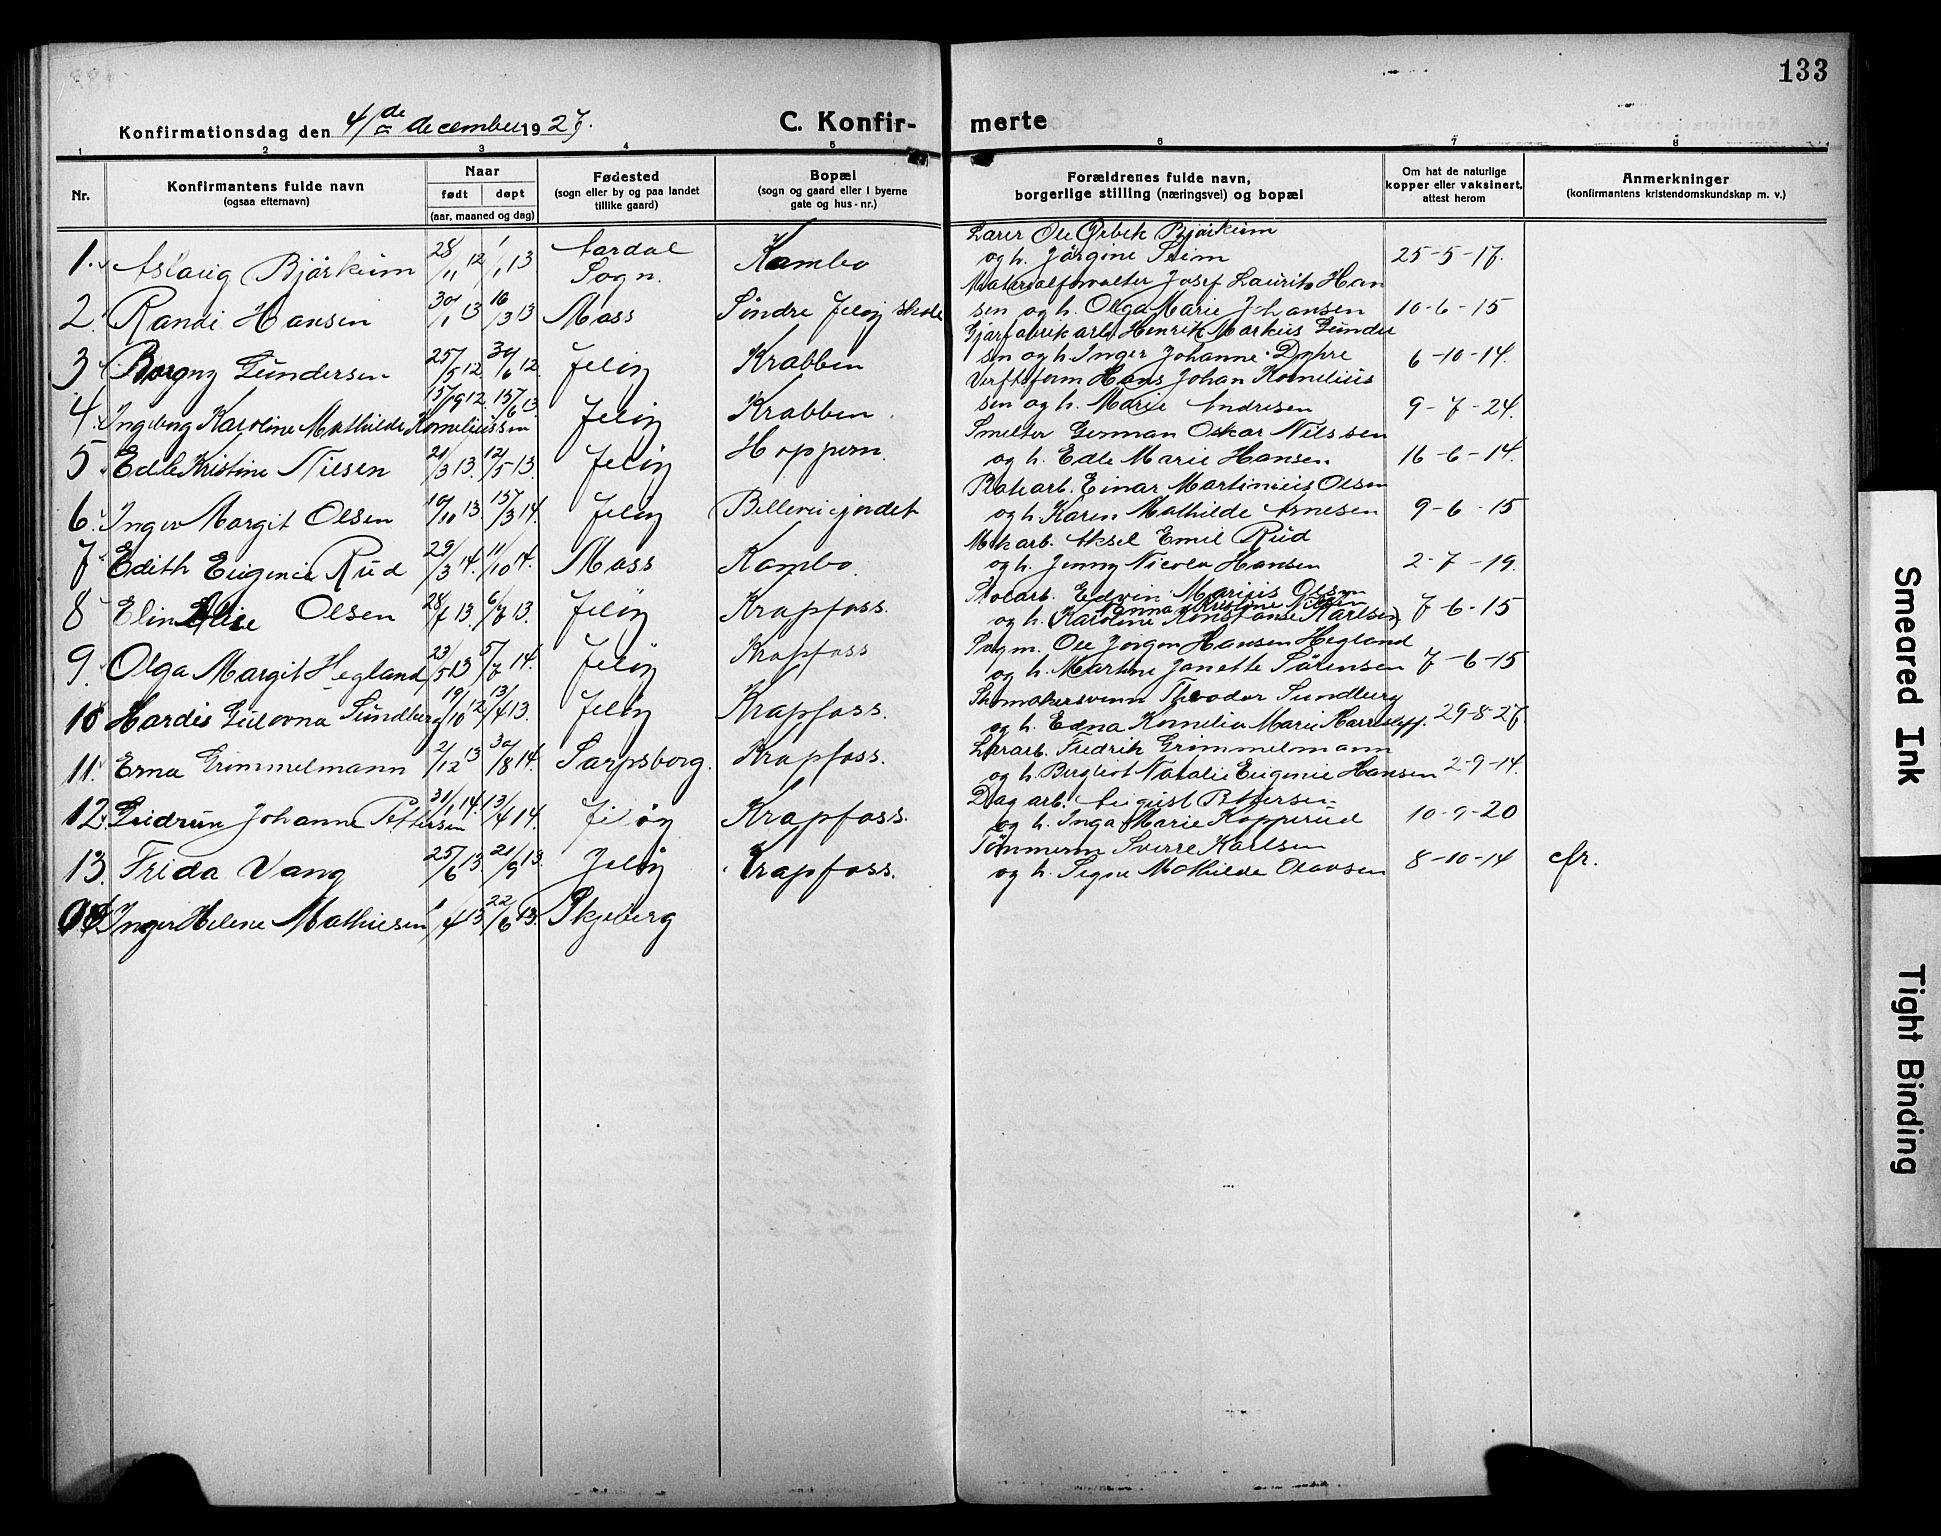 133
Konfirmationsdag den 4/de december 1927.
C. Konfir-
merte
1 2 3 4 5 6 7 8
Nr.
Konfirmantens fulde navn
(ogsaa efternavn)
Naar
født døpt
(aar, maaned og dag)
Fødested
(sogn eller by og paa landet
tillike gaard)
Bopæl
(sogn og gaard eller i byerne
gate og hus-nr.)
Forældrenes fulde navn,
borgerlige stilling (næringsvei) og bopæl
Om hat de naturlige
kopper eller vaksinert,
attest herom
Anmerkninger
(konfirmantens kristendomskundskap m. v.)
Lærer Ole Ørbek Bjørkum
1. Aslaug Bjørkum 28/11 12 1/1 13 Aardal Sogn. Kambo og h. Jørgine Seim 25-5-17.
Materialforvalter Josef Laurits Han
2. Randi Hansen 30/1 13 16/3 13 Moss Söndre Jeløy skole sen og h. Olga Marie Johansen 10-6-15
Gjærfabrikarb. Henrik Markus Gunder
3. Borgny Gundersen 25/5 12. 30/6 12. Jeløy Krabben sen og h. Inger Johanne Dyhre 6-10-14.
Verftsform Hans Johan Kornelius
4. Ingeborg Karoline Mathilde Korneliussen 15/9 12. 15/6 13. Jeløy Krabben. sen og h. Marie Andresen 9-7-24.
Smelter German Oskar Nilssen
5. Edle Kristine Nilsen 21/3 13. 12/5 13. Jeløy Hoppern. og h. Edle Marie Hansen. 16-6-14.
Einar Martinius Olsen
6. Inger Margit Olsen 10/10 13. 15/3 14. Jeløy Bellevuejordet og h. Karen Mathilde Arnesen 9-6-15
Mek arb. Aksel Emil Rud
7. Edith Eugenie Rud 29/3 14. 11/10 14. Moss Kambo. og h. Jenny Nicolea Hansen 2-7-19.
Edvin Marius Olsen
8 Elin Elise Olsen 28/1 13. 6/7 13. Jeløy Krapfoss. og h. Nanna Kristine Nilsen (Karoline Konstanse Karlsen) 7-6-15
Ole Jørgen Hansen Hegland
9. Olga Margit Hegland 23/5 13 5/7 14. Jeløy Krapfoss og h. Martine Janette Sörensen 7-6-15
Skomakersvenn Theodor Sundberg
10 Hardis Gulovna Sundberg 19/10 12 13/4 13. Jeløy Krapfoss. og h. Edna Kornelia Marie 29-8-27.
Fredrik Grimmelmann
11. Erna Grimmelmann 2/12 13 30/8 14. Sarpsborg. Krapfoss. og h. Bergliot Natalie Eugenie Hansen 2-9-14.
Dag arb. August Pettersen
12. Gudrun Johanne Pettersen 31/1 14. 13/4 14. Jeløy Krapfoss. og h. Inga Marie Kopperud 10-9-20
Tömmerm Sverre Karlsen
13. Frida Vang 25/6 13. 21/9 13. Jeløy Krapfoss. og h. Signe Mathilde Olavsen 8-10-14 cfr.
14 Inger Helene Mathiesen 1/4 13 22/6 13. Skjeberg
Smeared Ink
Tight Binding